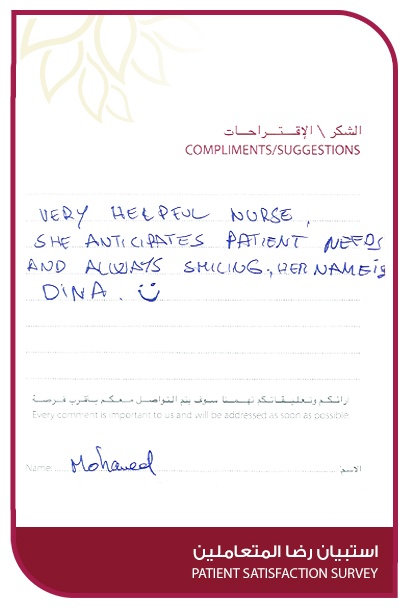 الشكر \ الإقتراحات
COMPLIMENTS/SUGGESTIONS
VERY HELPFUL NURSE,
SHE ANTICIPATES PATIENT NEEDS
AND ALWAYS SMILING, HER NAME is
DINA. :)
ارائكم وتعليقاتكم تهمنا سوف يتم التواصل معكم بأقرب فرصة
Every comment is important to us and will be addressed as soon as possible
Name: Mohamed الاسم:
استبيان رضا المتعاملين
PATIENT SATISFACTION SURVEY